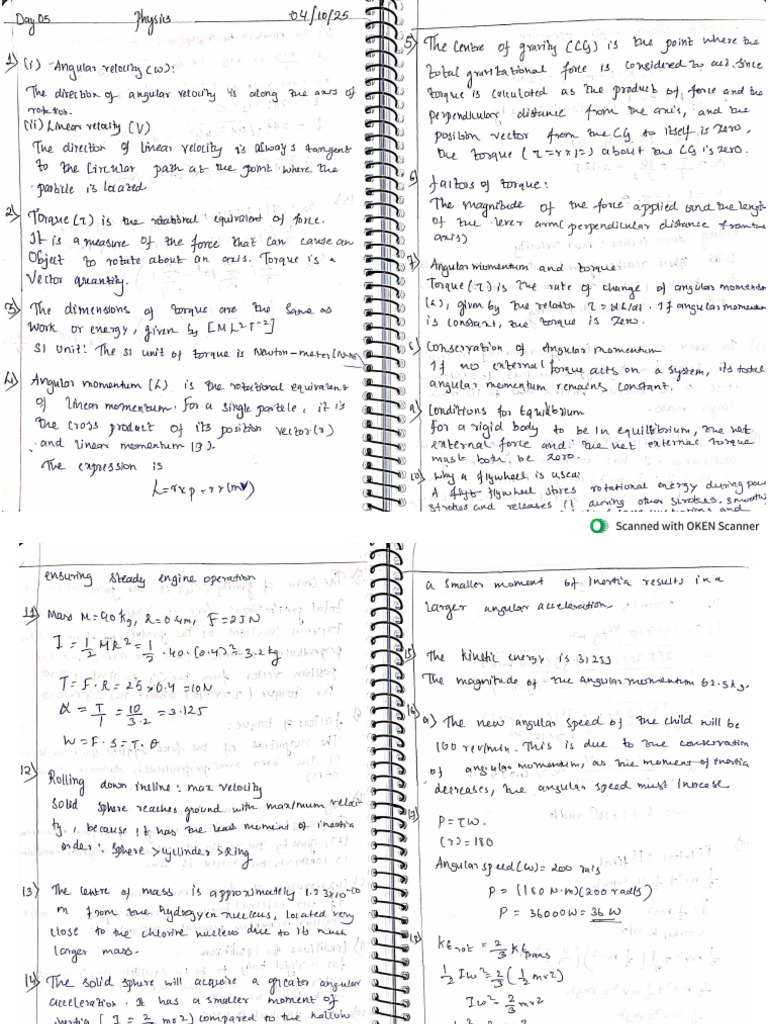 Day 05 Physics 04/10/25
1) (i) Angular velocity (ω):
The direction of angular velocity is along the axis of
rotation.
(ii) Linear velocity (V)
The direction of linear velocity is always tangent
to the circular path at the point where the
particle is located
2) Torque (τ) is the rotational equivalent of force.
It is a measure of the force that can cause an
Object to rotate about an axis. Torque is a
Vector quantity.
3) The dimensions of torque are the same as
work or energy, given by [ML²T⁻²]
SI unit: The SI unit of torque is Newton-meter (N-m)
4) Angular momentum (L) is the rotational equivalent
of linear momentum. For a single particle, it is
the cross product of its position vector (r)
and linear momentum (p).
The expression is
L = r x p = r r (mv)
5) The Centre of gravity (CG) is the point where the
total gravitational force is considered to act. Since
torque is calculated as the product of force and the
perpendicular distance from the axis, and the
position vector from the CG to itself is zero,
the torque (τ = r x F) about the CG is zero.
6) factors of torque:
The magnitude of the force applied and the length
of the lever arm (perpendicular distance from the
axis)
7) Angular momentum and torque
Torque (τ) is the rate of change of angular momentum
(L), given by the relation τ = dL/dt. If angular momentum
is constant, the torque is zero.
8) Conservation of Angular momentum
If no external torque acts on a system, its total
angular momentum remains constant.
9) Conditions for Equilibrium
for a rigid body to be in equilibrium, the net
external force and the net external torque
must both be zero.
10) Why a flywheel is used:
A flywheel stores rotational energy during pow
strokes and releases it during other strokes, smooth
and
Scanned with OKEN Scanner
ensuring steady engine operation
11) Mass M = 40 kg, R = 0.4m, F = 25N
I = 1/2 MR² = 1/2 · 40 · (0.4)² = 3.2 kg
T = F · R = 25 x 0.4 = 10N
α = T/I = 10/3.2 = 3.125
W = F · S = T · θ
12) Rolling down incline: max velocity
Solid sphere reaches ground with maximum velocity
, because it has the least moment of inertia
order: sphere > cylinder > Ring
13) The centre of mass is approximately
m from the hydrogen nucleus, located very
close to the chlorine nucleus due to its much
larger mass.
14) The solid sphere will acquire a greater angular
acceleration. It has a smaller moment of
inertia (I = 2/5 mr²) compared to the hollow
a smaller moment of inertia results in a
larger angular acceleration
15) The kinetic energy is 3125J
The magnitude of the angular momentum 62.5
16) a) The new angular speed of the child will be
100 rev/min. This is due to the conservation
of angular momentum, as the moment of inertia
decreases, the angular speed must increase
17) P = τω.
(τ) = 180
Angular speed (ω) = 200 rad/s
P = (180 N·m)(200 rad/s)
P = 36000W = 36 W
18) KE rot = 2/3 KE trans
1/2 Iω² = 2/3 (1/2 mv²)
Iω² = 2/3 mv²